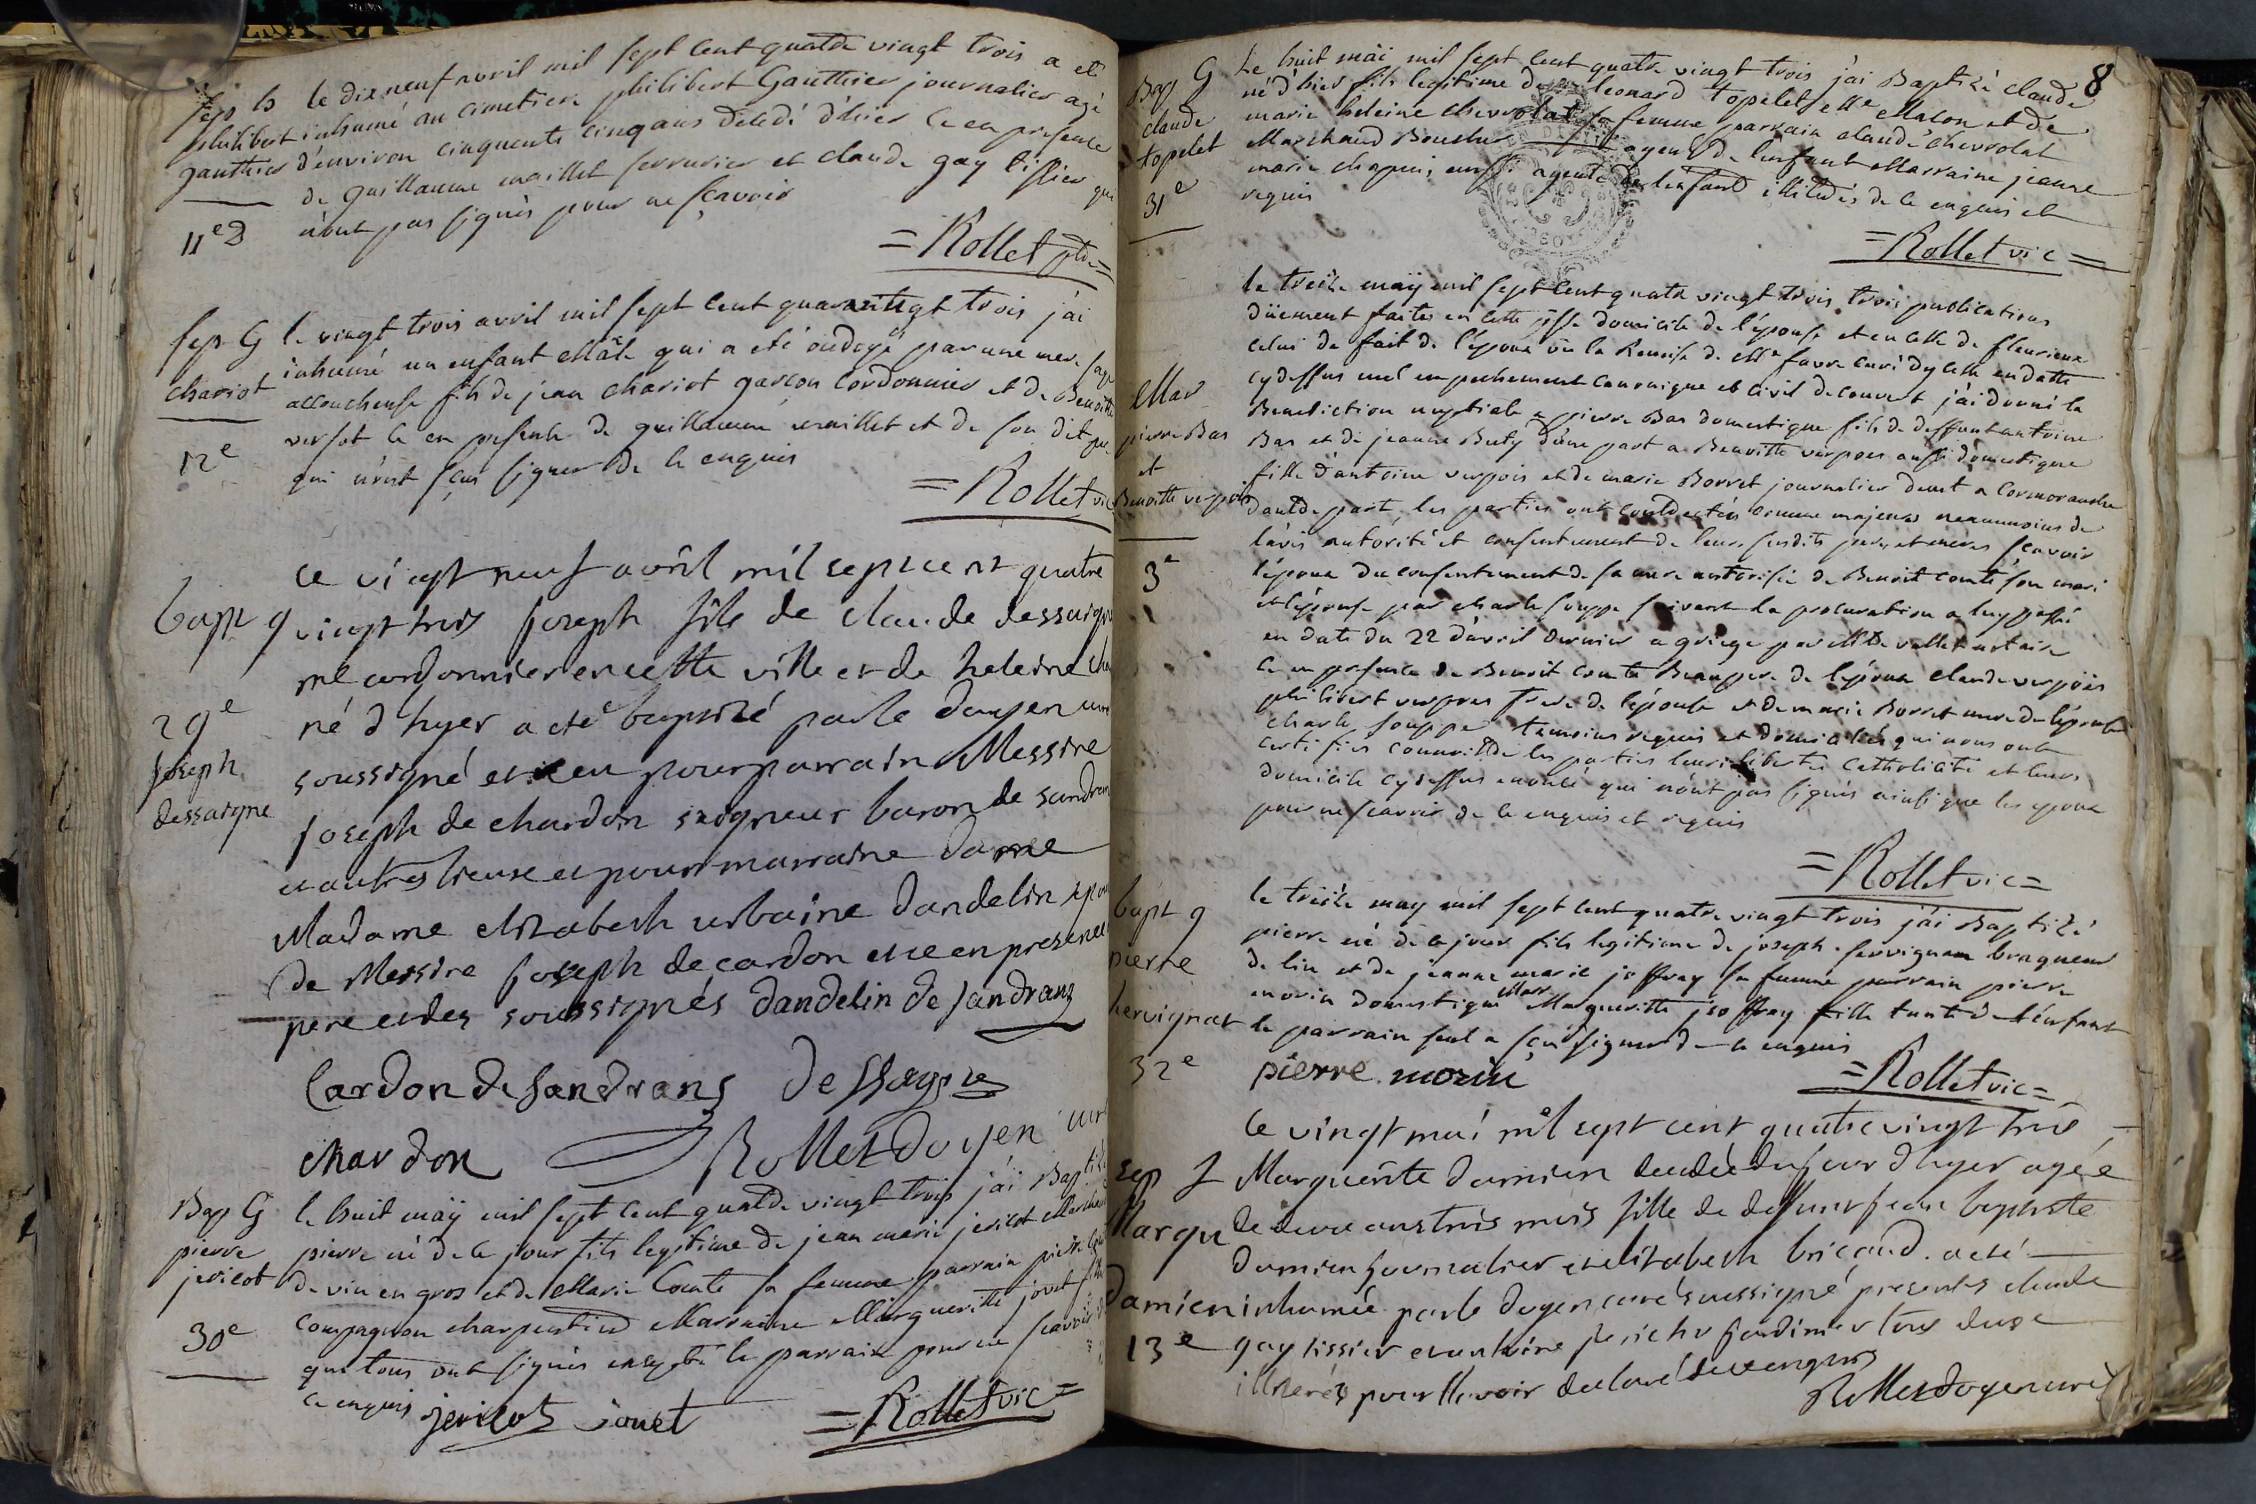 Sep G
philibert
gauthier
11e
le dix neuf avril mil sept cent quatre vingt trois a eté
inhumé au cimetiere philibert Gauthier journalier agé
d'environ cinquante cinq ans decedé d'hier ce en presence
de guillaume maillet serrurier et claude gay tissier qui
n'ont pas signés pour ne sçavoir
=Rollet ptre=
Sep G
chariot
12e
le vingt trois avril mil sept cent quatre vingt trois j'ai
inhumé un enfant Mâle qui a eté ondoyé par une mere sage
accoucheuse fils de jean chariot garçon cordonnier et de Benoitte
versot ce en presence de guillaume maillet et de son dit pere
qui n'ont sçus signer de ce enquis
=Rollet vic
bapt g
29e
joseph
dessaigne
ce vingt neuf avril mil sept cent quatre
vingt trois joseph fils de claude dessaigne
me cordonnier en cette ville et de heleine
né d'hyer a eté baptisé par le doyen curé
soussigné et a eu pour parrain Messire
joseph de chardon seigneur baron de sandrans
et autres lieux et pour marraine dame
Madame elizabeth urbaine dandelin epouse
de Messire joseph de cardon et ce en presence
pere et des soussignés dandelin de sandrans
Cardon de sandrans dessaigne
chardon Rollet doyen curé
Bap G
pierre
jericot
30e
le huit maÿ mil sept cent quatre vingt trois j'ai Baptisé
pierre né de ce jour fils legitime de jean marie jericot Marchand
de vin en gros et de Marie Comte sa femme parrain pierre
compagnon charpentier Marraine Margueritte jouet fille
qui tous ont signés excepté le parrain pour ne sçavoir de
ce enquis jericot jouet =Rollet vic=
8
Bap G
claude
topelet
31e
Le huit mai mil sept cent quatre vingt trois j'ai Baptizé claude
né d'hier fils legitime de leonard topelet Me Macon et de
marie heleine chevrolat sa femme parrain claude chevrolat
Marchand Boucher ayeul de l'enfant Marraine jeanne
marie chapuis aussi ayeule de l'enfant illiterés de ce enquis et
requis
=Rollet vic=
Mar
pierre Bas
et
Benoitte verpois
3e
le treize maÿ mil sept cent quatre vingt trois trois publications
düement faites en cette psse domicile de l'épouse et en celle de fleurieux
celui de fait de l'epoux vû la Remise de Mre favre curé dycelle en datte
cydessus nul empechement canonique et civil decouvert j'ai donné la
Benediction nuptiale a pierre Bas domestique fils de deffunt antoine
Bas et de jeanne Buty d'une part a Benoitte verpois aussi domestique
fille d'antoine verpois et de marie Borret journalier demt a Cormoranche
d'autre part les parties ont contractés comme majeurs neanmoins de
l'avis autorité et consentement de leurs susdits peres et meres sçavoir
l'epoux du consentement de sa mere autorisée de Benoit comte son mari
et l'épouse par charle souppe suivant la procuration a luy passé
en date du 22 d'avril dernier a griege par Mre vallet notaire
ce en presence de Benoit comte Beaupere de l'epoux claude verpois
philibert verpois frere de l'épouse et de marie Borret mere de l'épouse
charle souppe temoins requis et domiciliés qui nous ont
certifiés connoitre les parties leurs libertés catholicité et leurs
domicile cydessus enoncé qui n'ont pas signés ainsi que les epoux
pour ne sçavoir de ce enquis et requis
=Rollet vic=
bapt g
pierre
hervignat
32e
le treize may mil sept cent quatre vingt trois j'ai Baptizé
pierre né de ce jour fils legitime de joseph servignam
de lin et de jeanne marie joffray sa femme parrain pierre
morin domestique Marr Margueritte joffray fille tante de l'enfant
le parrain seul a sçu signer de ce enquis
pierre morin =Rollet vic=
sep f
Margu
damien
13e
ce vingt mai mil sept cent quatre vingt trois
Marguerite damien decedée du jour d'hyer agée
de deux ans trois mois fille de deffunt jean baptiste
damien journalier et elizabeth bricaud a eté
inhumée par le doyen curé soussigné presents claude
gay tissier et antoine jardinier tous deux
illiterés pour ne sçavoir declaré de ce enquis
Rollet doyen curé